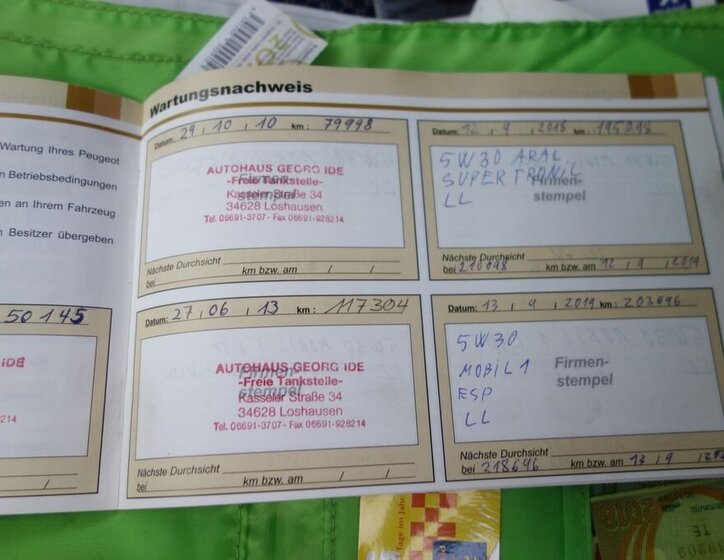 Wartung Ihres Peugeot
n Betriebsbedingungen
en an Ihrem Fahrzeug
n Besitzer übergeben
50145
IDE
214
/
Wartungsnachweis
Datum: 29 , 10 , 10 km : 79998
AUTOHAUS GEORG IDE
-Freie Tankstelle-
Firmen-
stempel
Kasseler Straße 34
34628 Loshausen
Tel. 06691-3707 - Fax 06691-928214
Nächste Durchsicht
bei km bzw. am / /
Datum: 27 , 06 , 13 km : 117304
AUTOHAUS GEORG IDE
-Freie Tankstelle-
Firmen-
stempel
Kasseler Straße 34
34628 Loshausen
Tel. 06691-3707 - Fax 06691-928214
Nächste Durchsicht
bei km bzw. am / /
Datum: 12 , 9 , 2018 km : 195098
5W30 ARAL
SUPER TRONIC
LL
Firmen-
stempel
Nächste Durchsicht
bei 210098 km bzw. am 12 , 9 , 2019
Datum: 13 , 9 , 2019 km : 203646
5W30
MOBIL 1
ESP
LL
Firmen-
stempel
Nächste Durchsicht
bei 218646 km bzw. am 13 , 9
Tage im Jahr